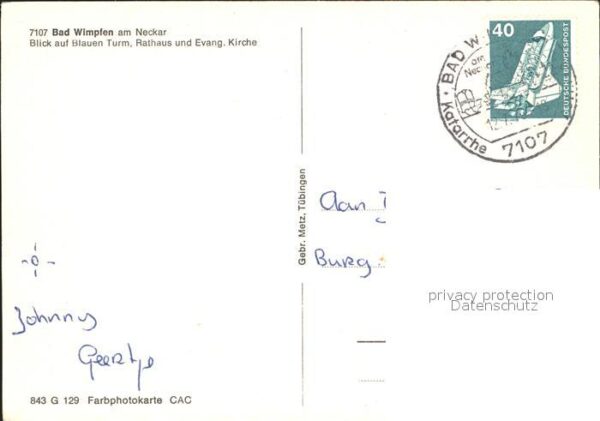 7107 Bad Wimpfen am Neckar
Blick auf Blauen Turm, Rathaus und Evang. Kirche
40
DEUTSCHE BUNDESPOST
BAD W
am
Katarrhe
7107
Gebr. Metz, Tübingen
Aan
Burg
privacy protection
Datenschutz
Johnny
Geertje
843 G 129 Farbphotokarte CAC